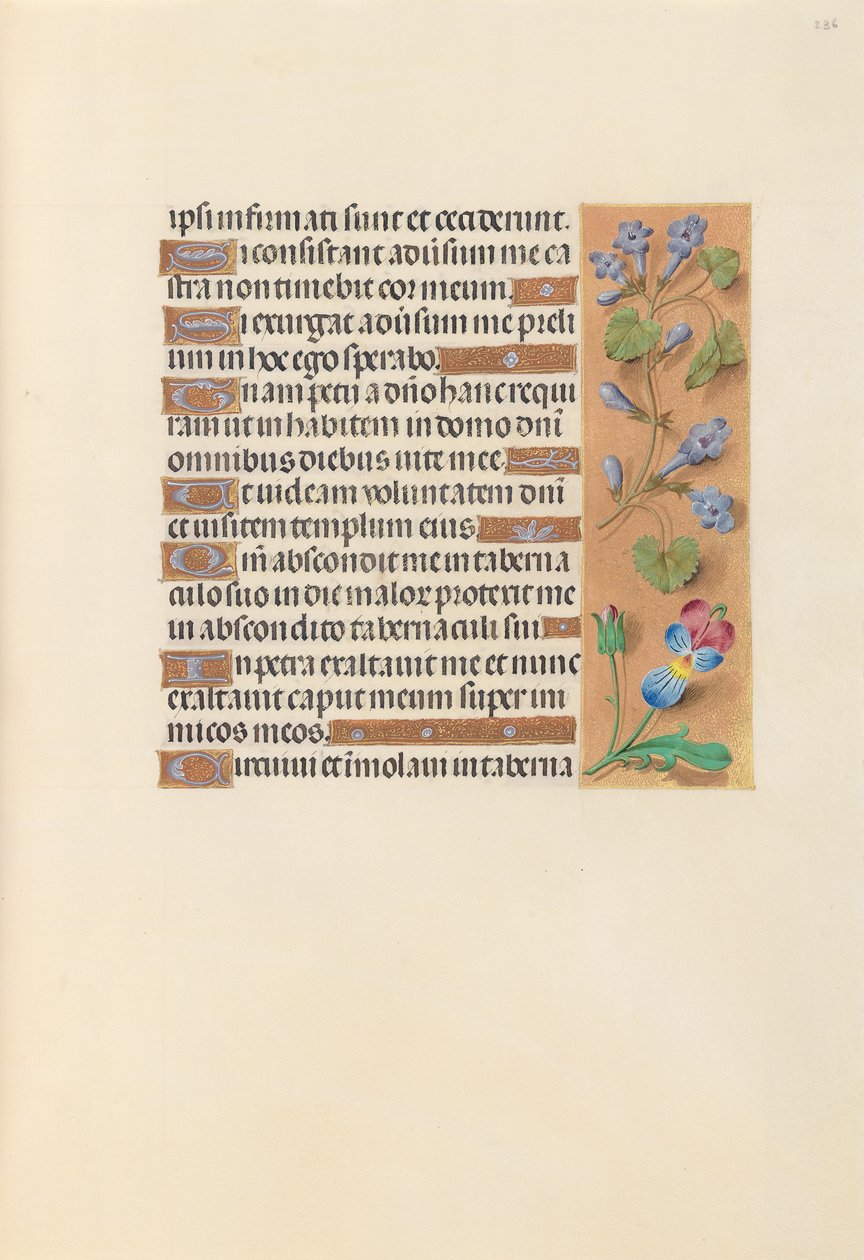 236
ipsi infirmati sunt et ceciderunt.
Si consistant adūsum me ca
stra non timebit cor meum.
Si exurgat adūsum me preli
um in hoc ego sperabo.
Unam petii a dño hanc requi
ram ut inhabitem in domo dñi
omnibus diebus uite mee.
Ut uideam voluntatem dñi
et uisitem templum eius.
Qm̄ abscondit me in taberna
culo suo in die maloꝝ protexit me
in abscondito tabernaculi sui
In petra exaltauit me et nunc
exaltauit caput meum super ini
micos meos.
Circuiui et īmolaui in taberna